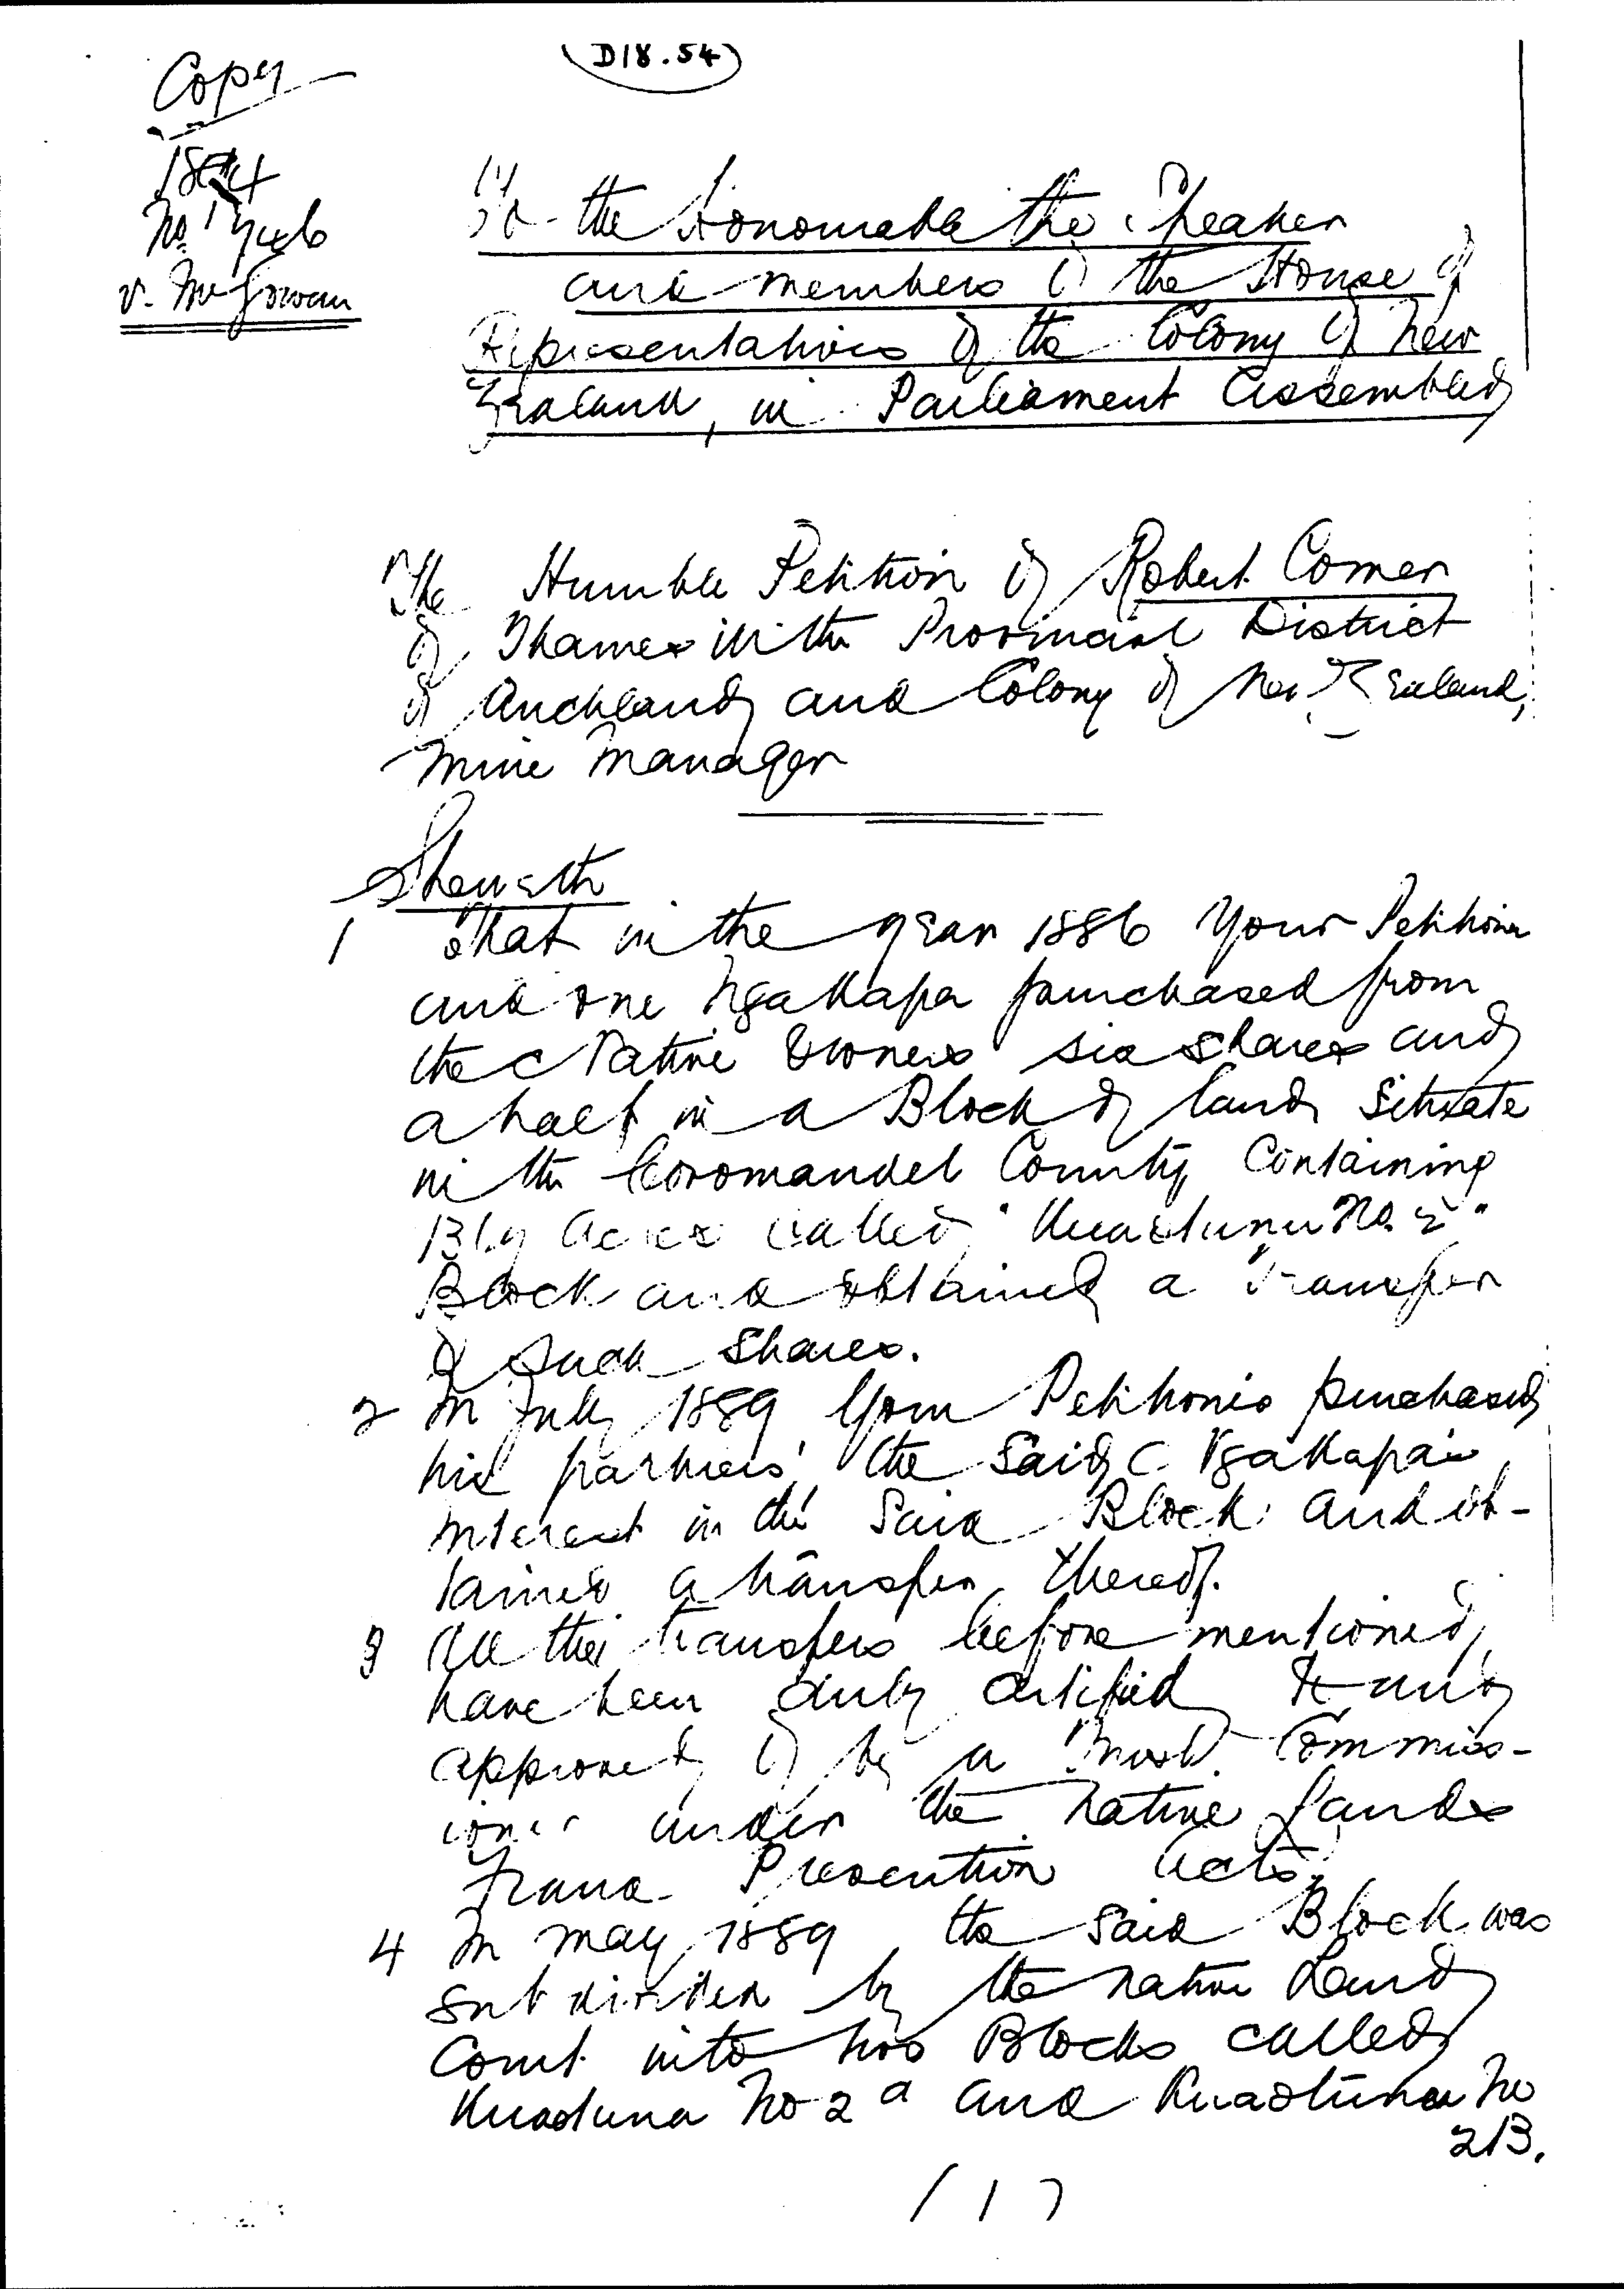 D18.54
Copy
v. McGowan
To the Honourable the Speaker
and members of the House of
Representatives of the Colony of New
Zealand, in Parliament Assembled
The Humble Petition of Robert Comer
of Thames in the Provincial District
of Auckland and Colony of New Zealand,
Mine Manager
Sheweth
1 That in the year 1886 Your Petitioner
and one Ngakapa purchased from
the Native Owners six shares and
a half in a Block of land situate
in the Coromandel County Containing
Acres called "Kuaotunu No. 2"
Block and obtained a Transfer
of such shares.
2 In July 1889 Your Petitioner purchased
his partners' the said Ngakapa's
interest in the said Block and ob-
tained a transfer thereof.
3 All the transfers before mentioned
have been duly certified to and
approved of by a Trust Commiss-
ioner under the Native Lands
Fraud Prevention Acts.
4 In May 1889 the said Block was
sub divided by the Native Land
Court into two Blocks called
Kuaotunu No 2a and Kuaotunu No
2B.